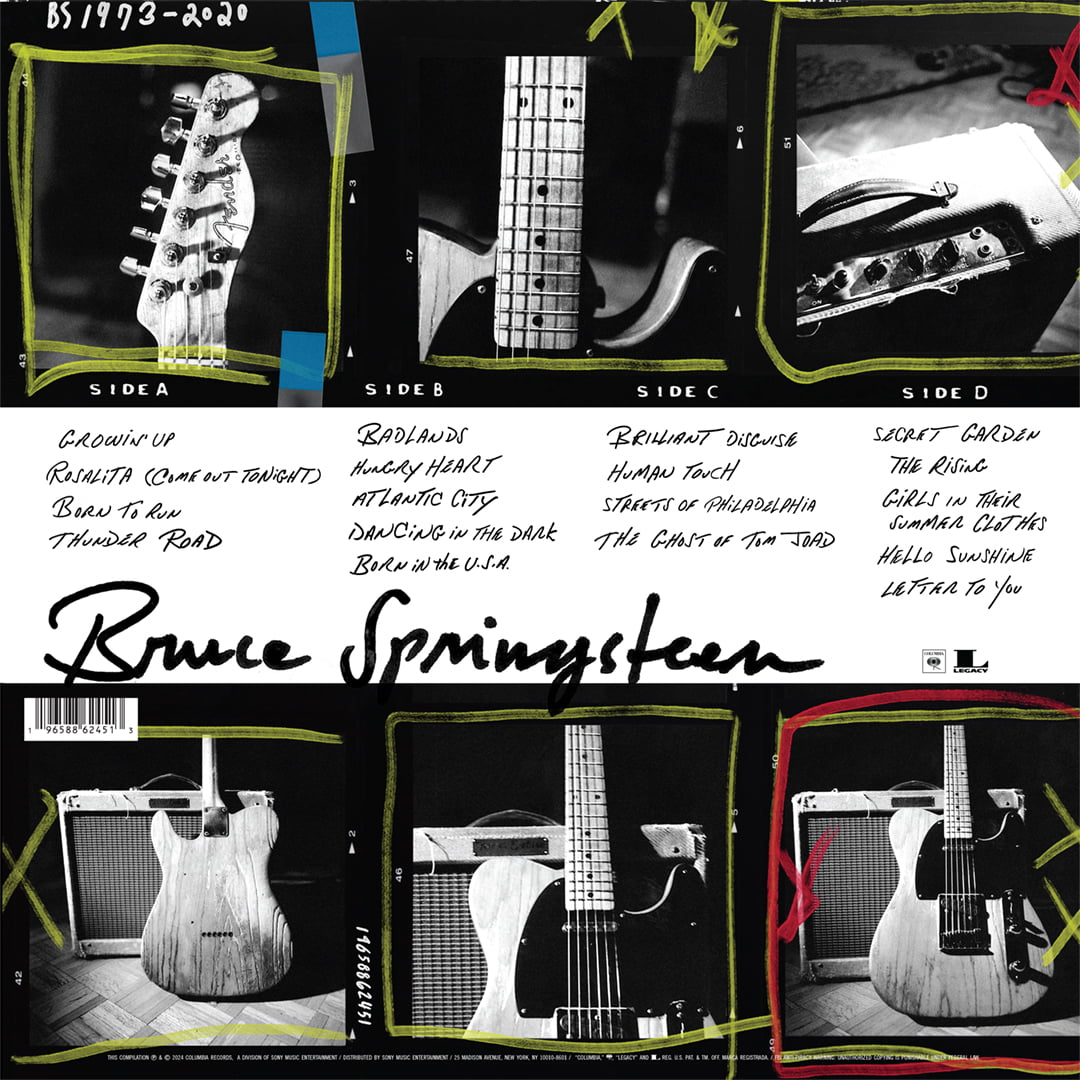 BS 1973-2020
44
43
3
47
6
51
Fender
ON
SIDE A
SIDE B
SIDE C
SIDE D
GROWIN' UP
ROSALITA (COME OUT TONIGHT)
BORN TO RUN
THUNDER ROAD
BADLANDS
HUNGRY HEART
ATLANTIC CITY
DANCING IN THE DARK
BORN IN the U.S.A.
BRILLIANT DISGUISE
HUMAN TOUCH
STREETS OF PHILADELPHIA
THE GHOST OF TOM JOAD
SECRET GARDEN
THE RISING
GIRLS IN THEIR
SUMMER CLOTHES
HELLO SUNSHINE
LETTER TO YOU
Bruce Springsteen
COLUMBIA
L
LEGACY
1 96588 62451 3
42
2
19658862451
46
5
50
49
THIS COMPILATION ℗ & © 2024 COLUMBIA RECORDS, A DIVISION OF SONY MUSIC ENTERTAINMENT / DISTRIBUTED BY SONY MUSIC ENTERTAINMENT / 25 MADISON AVENUE, NEW YORK, NY 10010-8601 / "COLUMBIA," "LEGACY" AND L REG. U.S. PAT. & TM. OFF. MARCA REGISTRADA. / FBI ANTI-PIRACY WARNING: UNAUTHORIZED COPYING IS PUNISHABLE UNDER FEDERAL LAW.